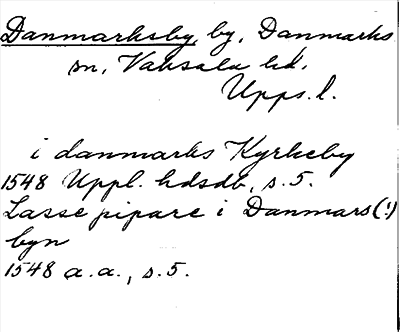 Danmarksby, by, Danmarks
sn, Vaksala hd,
Upps. l.
i danmarks Kyrkeby
1548 Uppl. hdsdb, s. 5.
Lasse pipare i Danmars(!)
byn
1548 a. a., s. 5.